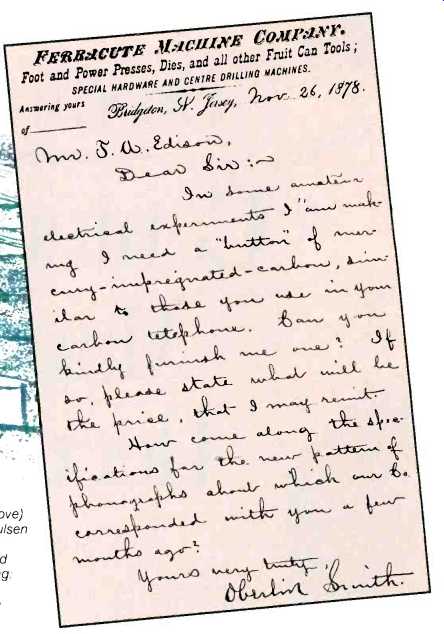 FERRACUTE MACHINE COMPANY.
Foot and Power Presses, Dies, and all other Fruit Can Tools;
SPECIAL HARDWARE AND CENTRE DRILLING MACHINES.
Answering yours
of
Bridgeton, N. Jersey, Nov. 26, 1878.
Mr. T. A. Edison,
Dear Sir:~
In some amateur
electrical experiments I am mak-
ing I need a "button" of mer-
cury-impregnated-carbon, sim-
ilar to those you use in your
carbon telephone. Can you
kindly furnish me one? If
so, please state what will be
the price, that I may remit.
How come along the spec-
ifications for the new pattern of
phonographs about which our Co.
corresponded with you a few
months ago?
Yours very truly,
Oberlin Smith.
ove)
ulsen
d
ng